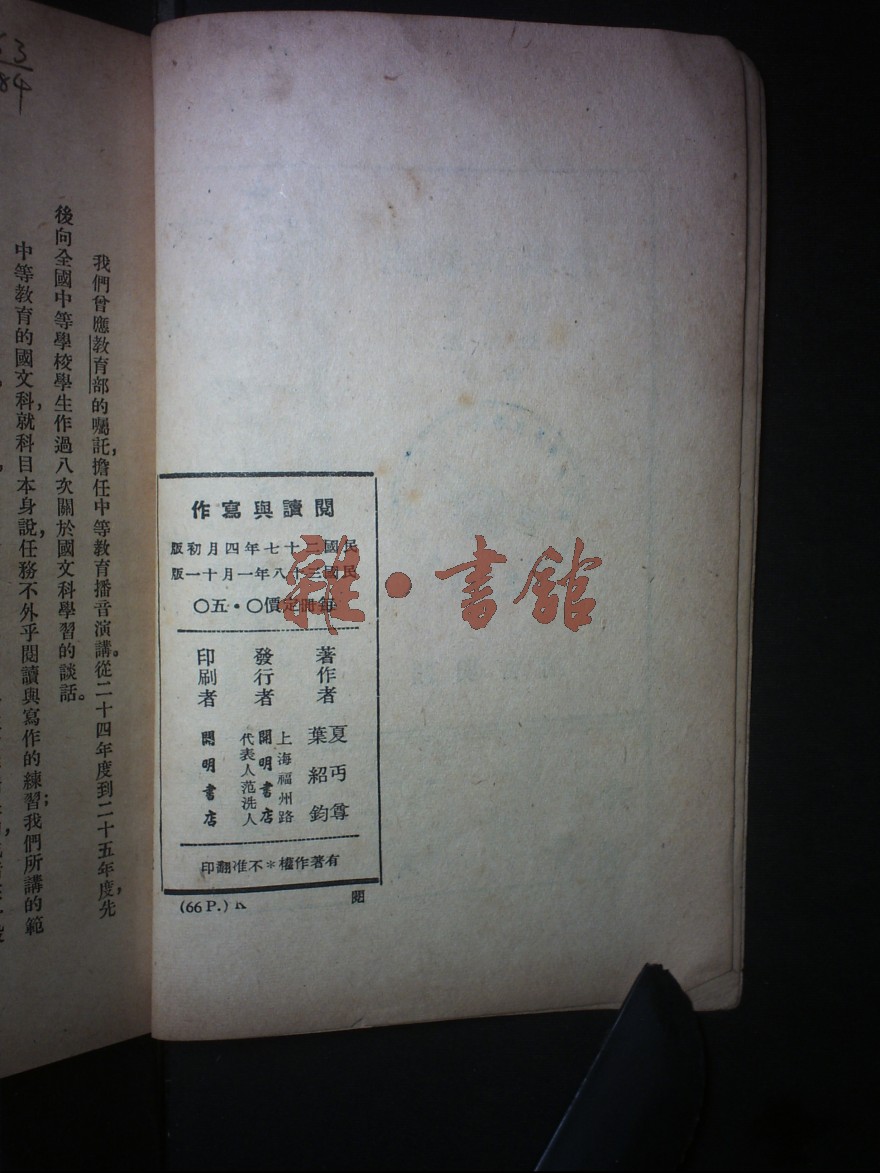 閱讀與寫作
民國二十七年四月初版
民國三十八年一月十一版
每冊定價〇·五〇
著作者
夏丏尊
葉紹鈞
發行者
上海福州路
開明書店
代表人范洗人
印刷者
開明書店
有著作權*不准翻印
(66 P.) K
閱
雜·書館
我們曾應教育部的囑託，擔任中等教育播音演講。從二十四年度到二十五年度，先
後向全國中等學校學生作過八次關於國文科學習的談話。
中等教育的國文科，就科目本身說，任務不外乎閱讀與寫作的練習；我們所講的範